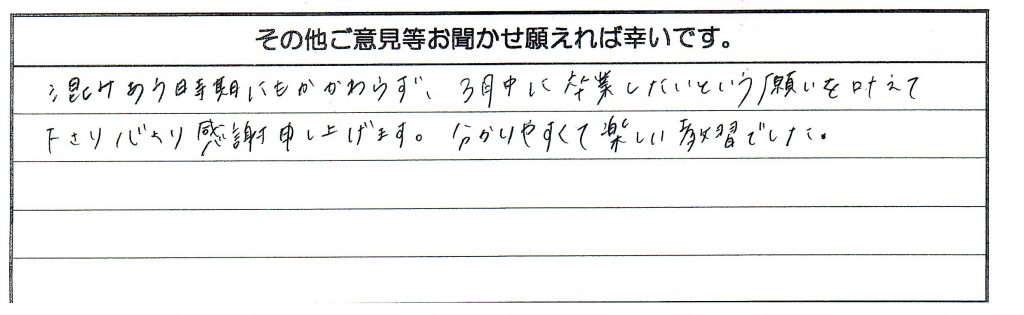 その他ご意見等お聞かせ願えれば幸いです。
混みあう時期にもかかわらず、3月中に卒業したいという願いを叶えて
下さり心より感謝申し上げます。分かりやすくて楽しい教習でした。